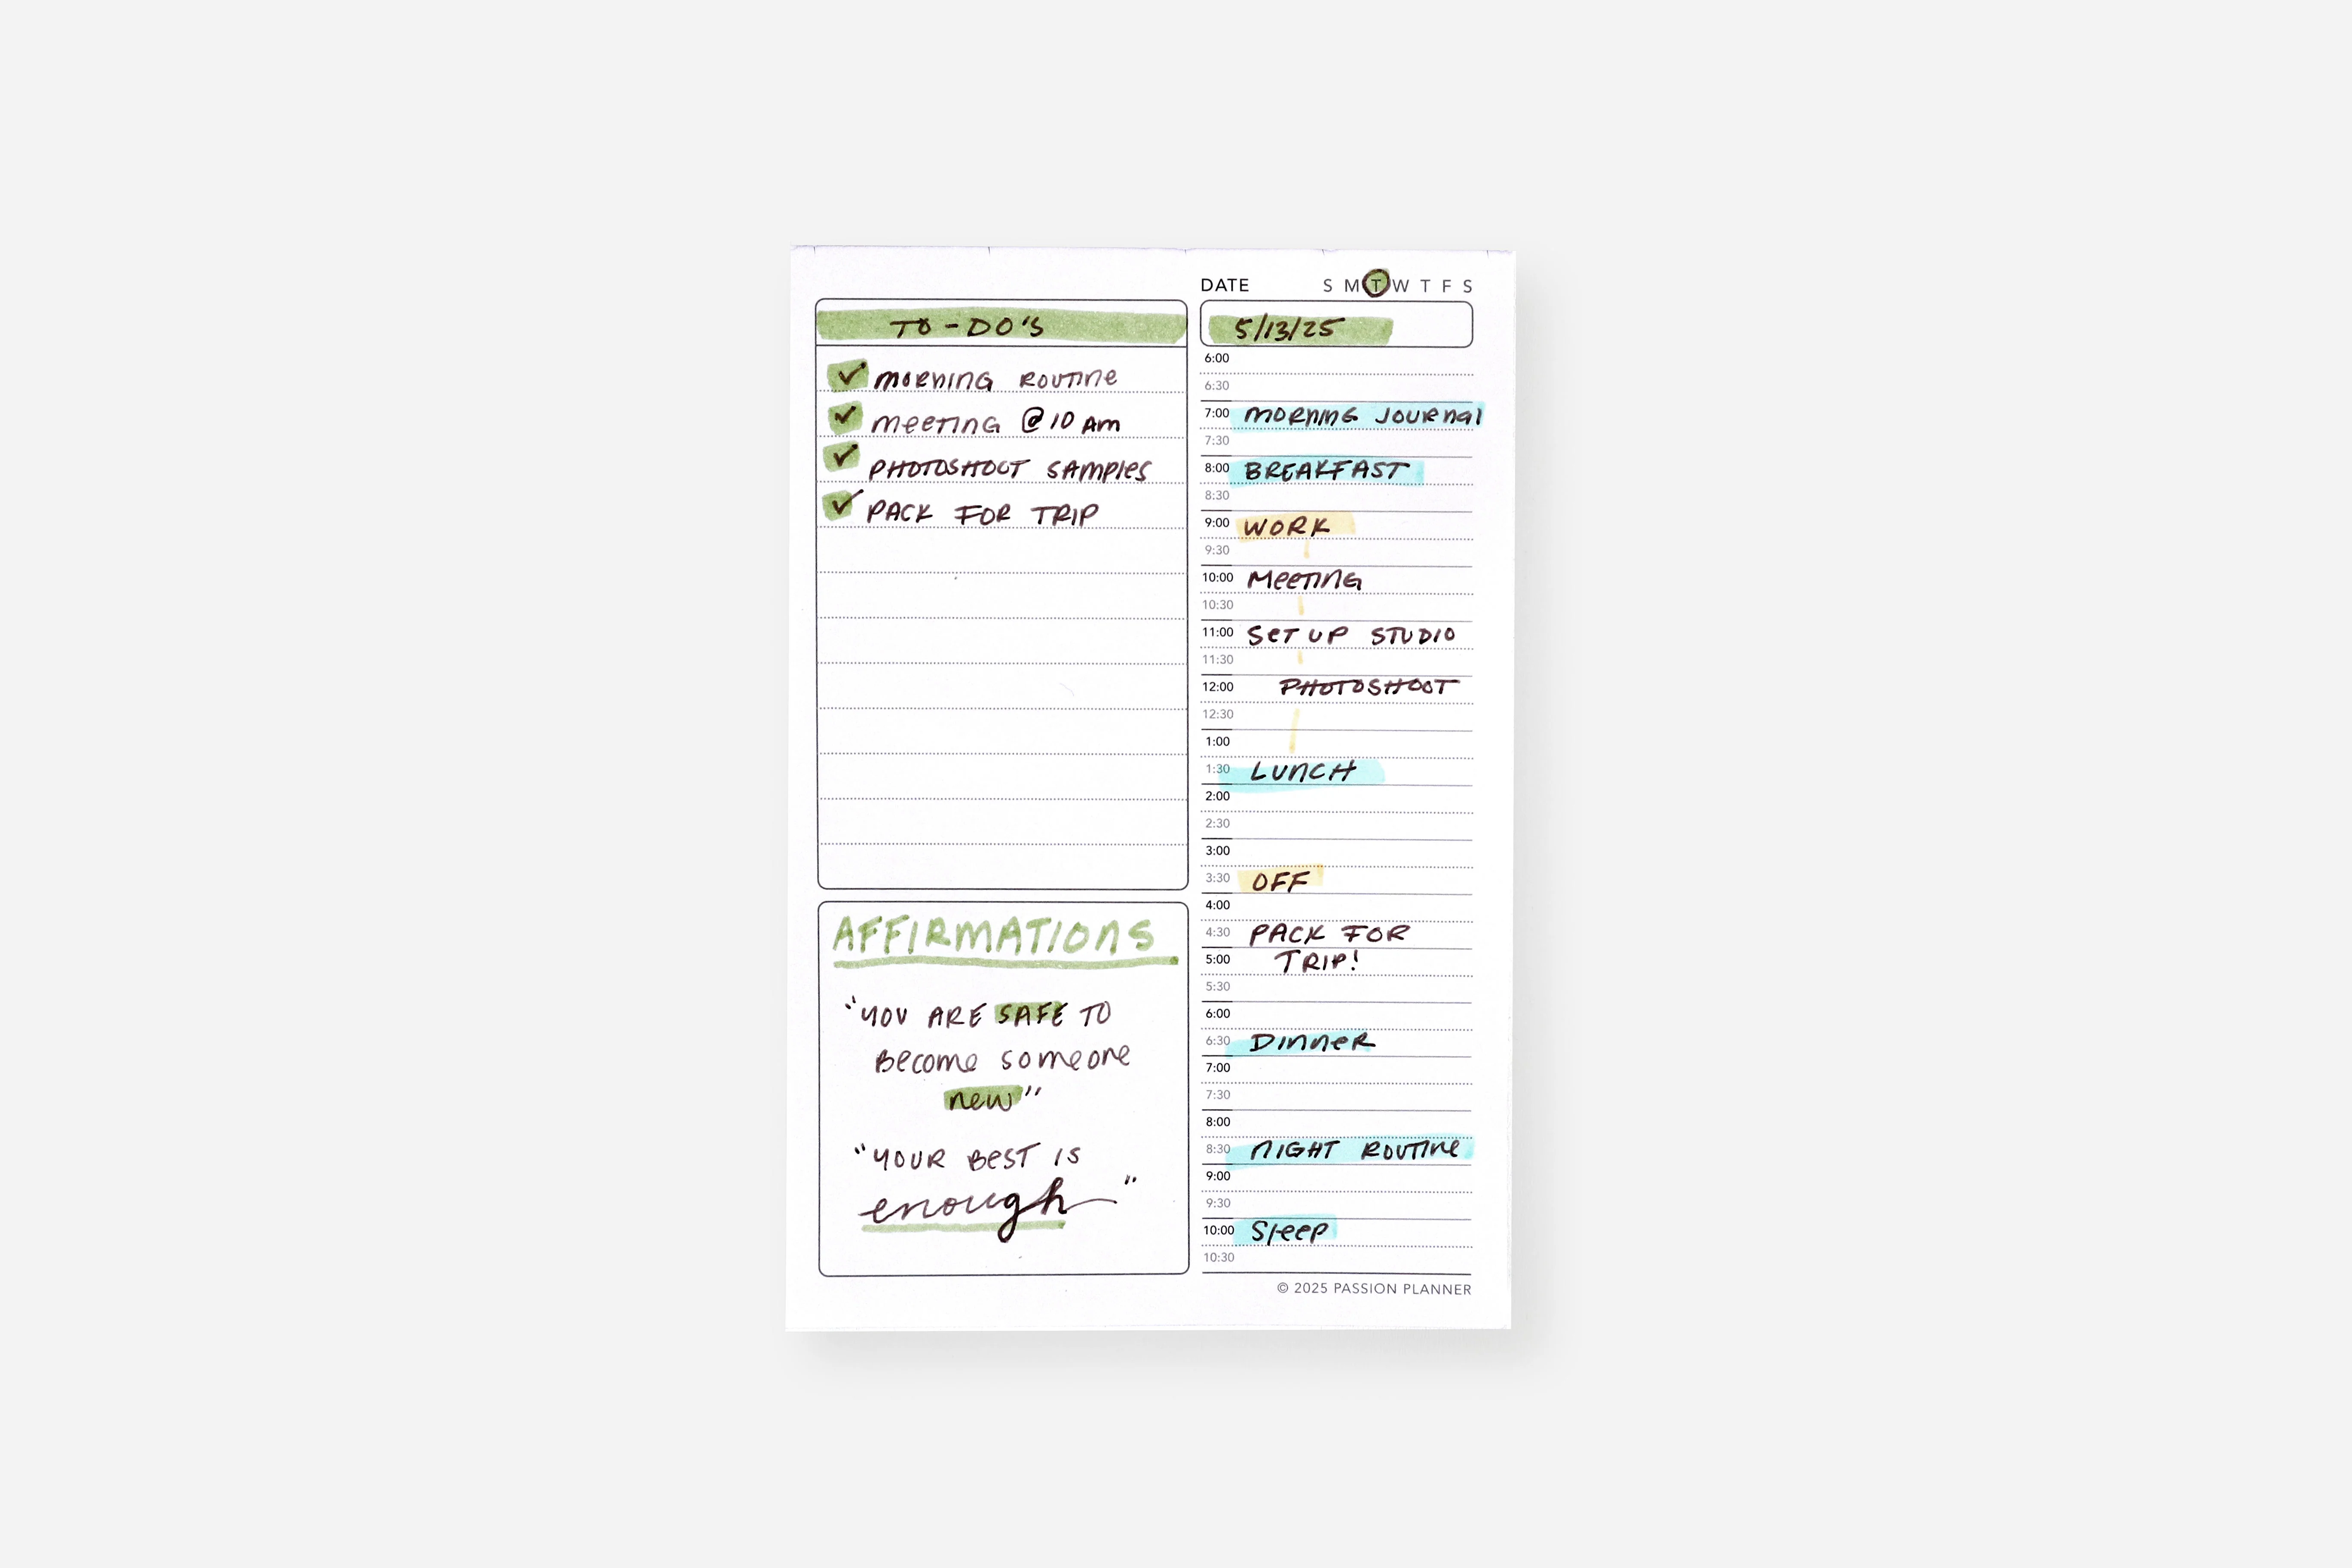 DATE S M T W T F S
TO-DO'S
5/13/25
MORNING ROUTINE
MEETING @ 10 AM
PHOTOSHOOT SAMPLES
PACK FOR TRIP
AFFIRMATIONS
"YOU ARE SAFE TO
BECOME SOMEONE
NEW"
"YOUR BEST IS
enough"
6:00
6:30
7:00 MORNING JOURNAL
7:30
8:00 BREAKFAST
8:30
9:00 WORK
9:30
10:00 MEETING
10:30
11:00 SET UP STUDIO
11:30
12:00 PHOTOSHOOT
12:30
1:00
1:30 LUNCH
2:00
2:30
3:00
3:30 OFF
4:00
4:30 PACK FOR
5:00 TRIP!
5:30
6:00
6:30 DINNER
7:00
7:30
8:00
8:30 NIGHT ROUTINE
9:00
9:30
10:00 SLEEP
10:30
© 2025 PASSION PLANNER